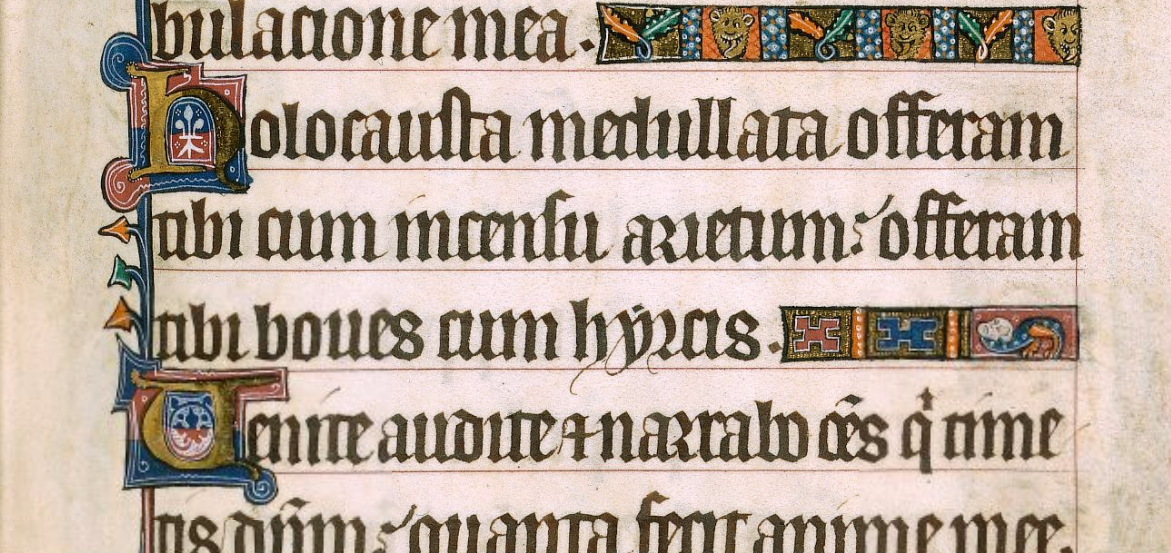 bulacione mea.
Holocausta medullata offeram
tibi cum incensu arietum: offeram
tibi boues cum hyrcis.
Uenite audite ⁊ narrabo o̅e̅s qⁱ time
tis dn̅m: quanta fecit anime mee.